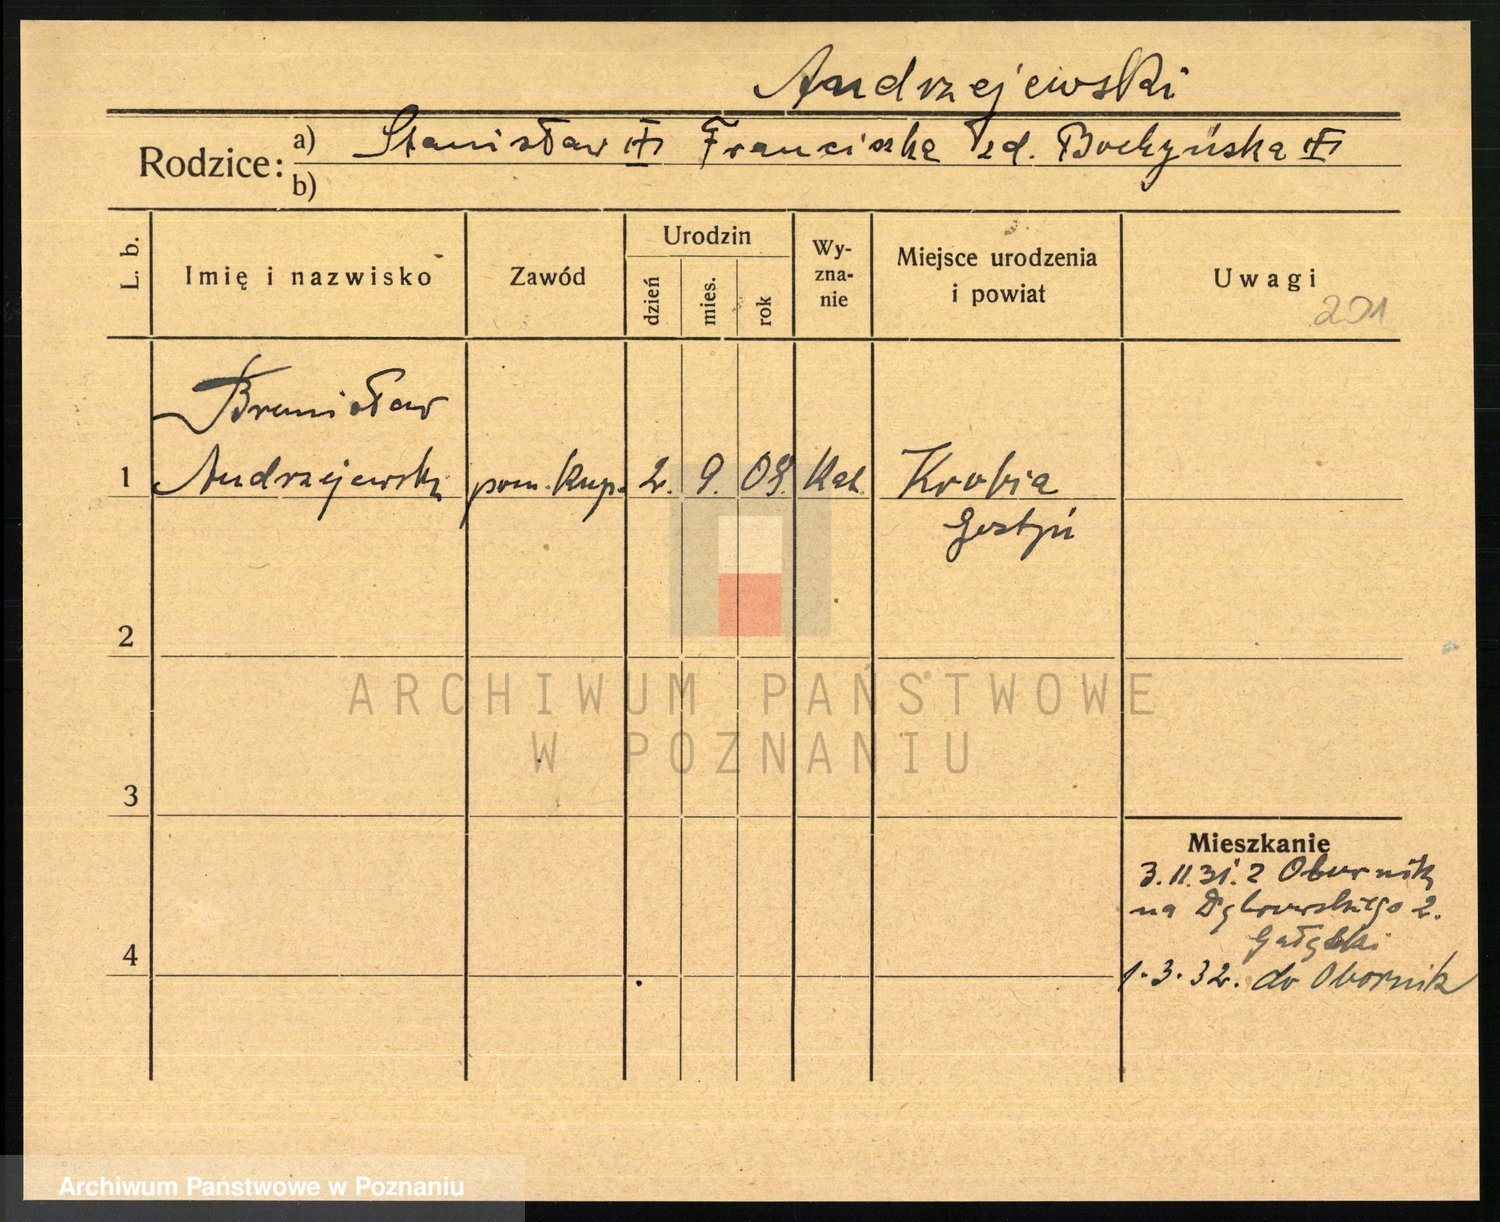 Andrzejewski
Rodzice: a) Stanisław Franciszka zd.
b)
L. b. Imię i nazwisko Zawód Urodzin dzień mies. rok Wy-zna-nie Miejsce urodzenia i powiat Uwagi
201
Bronisław
1 Andrzejewski pom. kup. 2. 9. 09. Kat. Krobia
Gostyń
2
ARCHIWUM PAŃSTWOWE
W POZNANIU
3
Mieszkanie
3.11.31. z Obornik
na Dąbrowskiego 2.
4
1.3.32. do Obornik
Archiwum Państwowe w Poznaniu